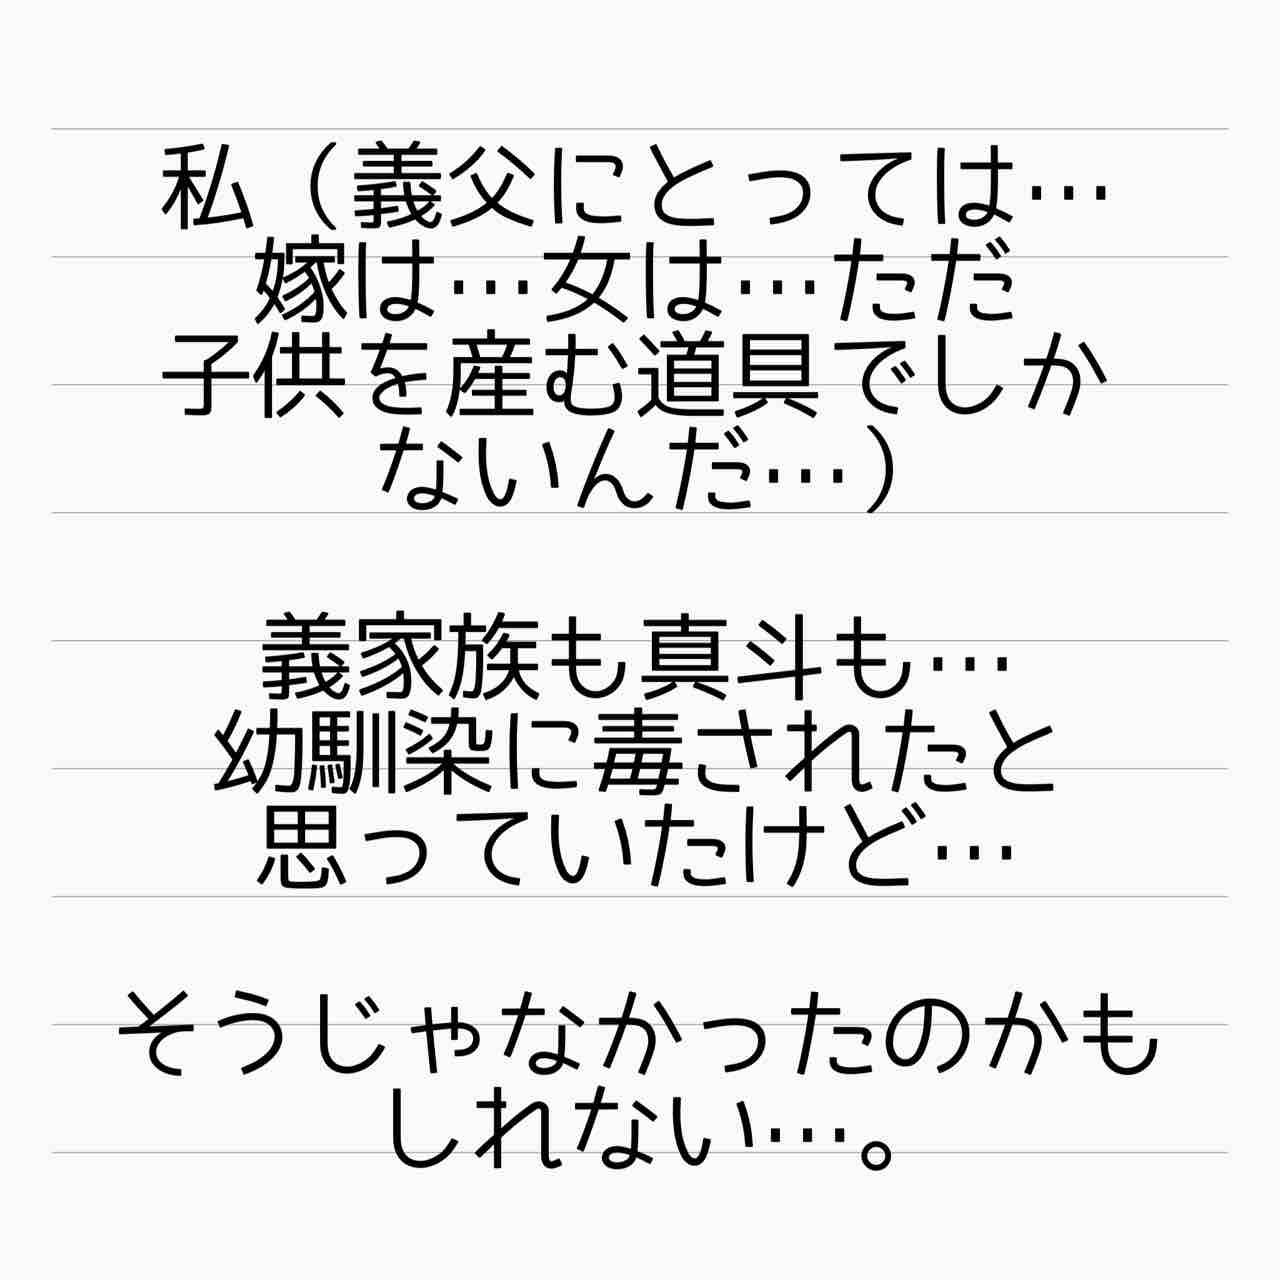 私（義父にとっては…
嫁は…女は…ただ
子供を産む道具でしか
ないんだ…）
義家族も真斗も…
幼馴染に毒されたと
思っていたけど…
そうじゃなかったのかも
しれない…。